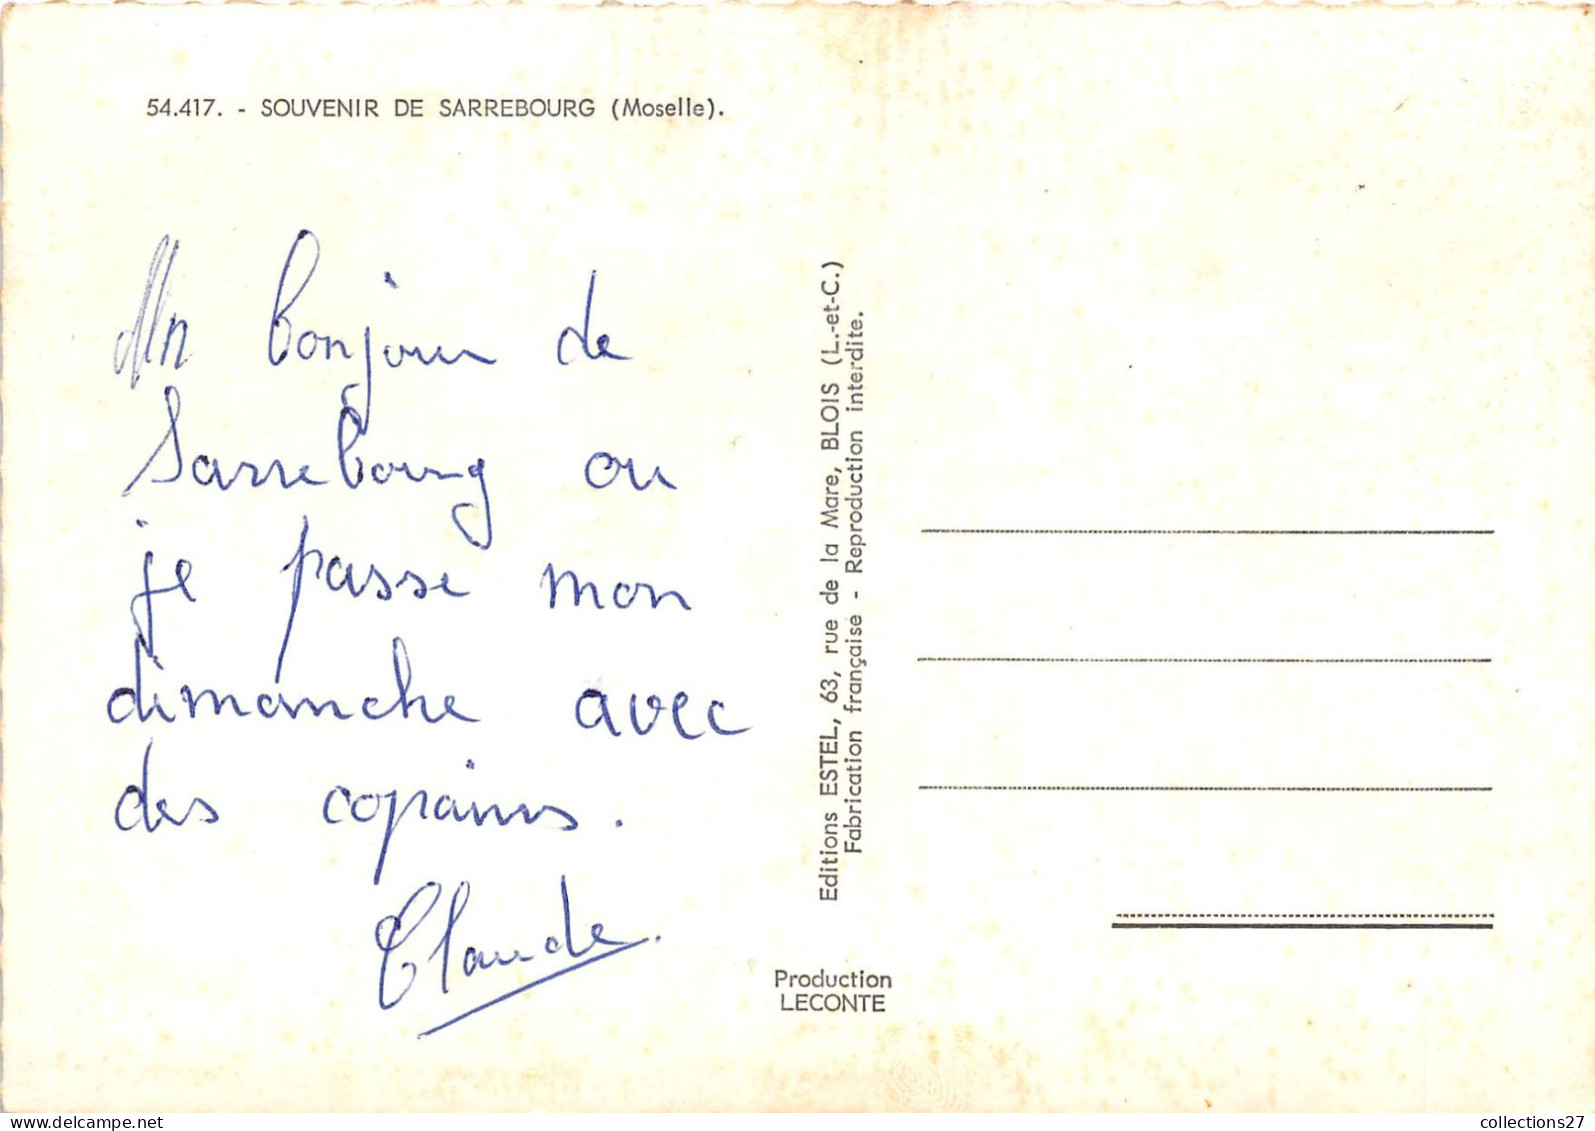 54.417. - SOUVENIR DE SARREBOURG (Moselle).
Un bonjour de
Sarrebourg ou
je passe mon
dimanche avec
des copains.
Claude.
Editions ESTEL, 63, rue de la Mare, BLOIS (L.-et-C.)
Fabrication française - Reproduction interdite.
Production
LECONTE
collections27